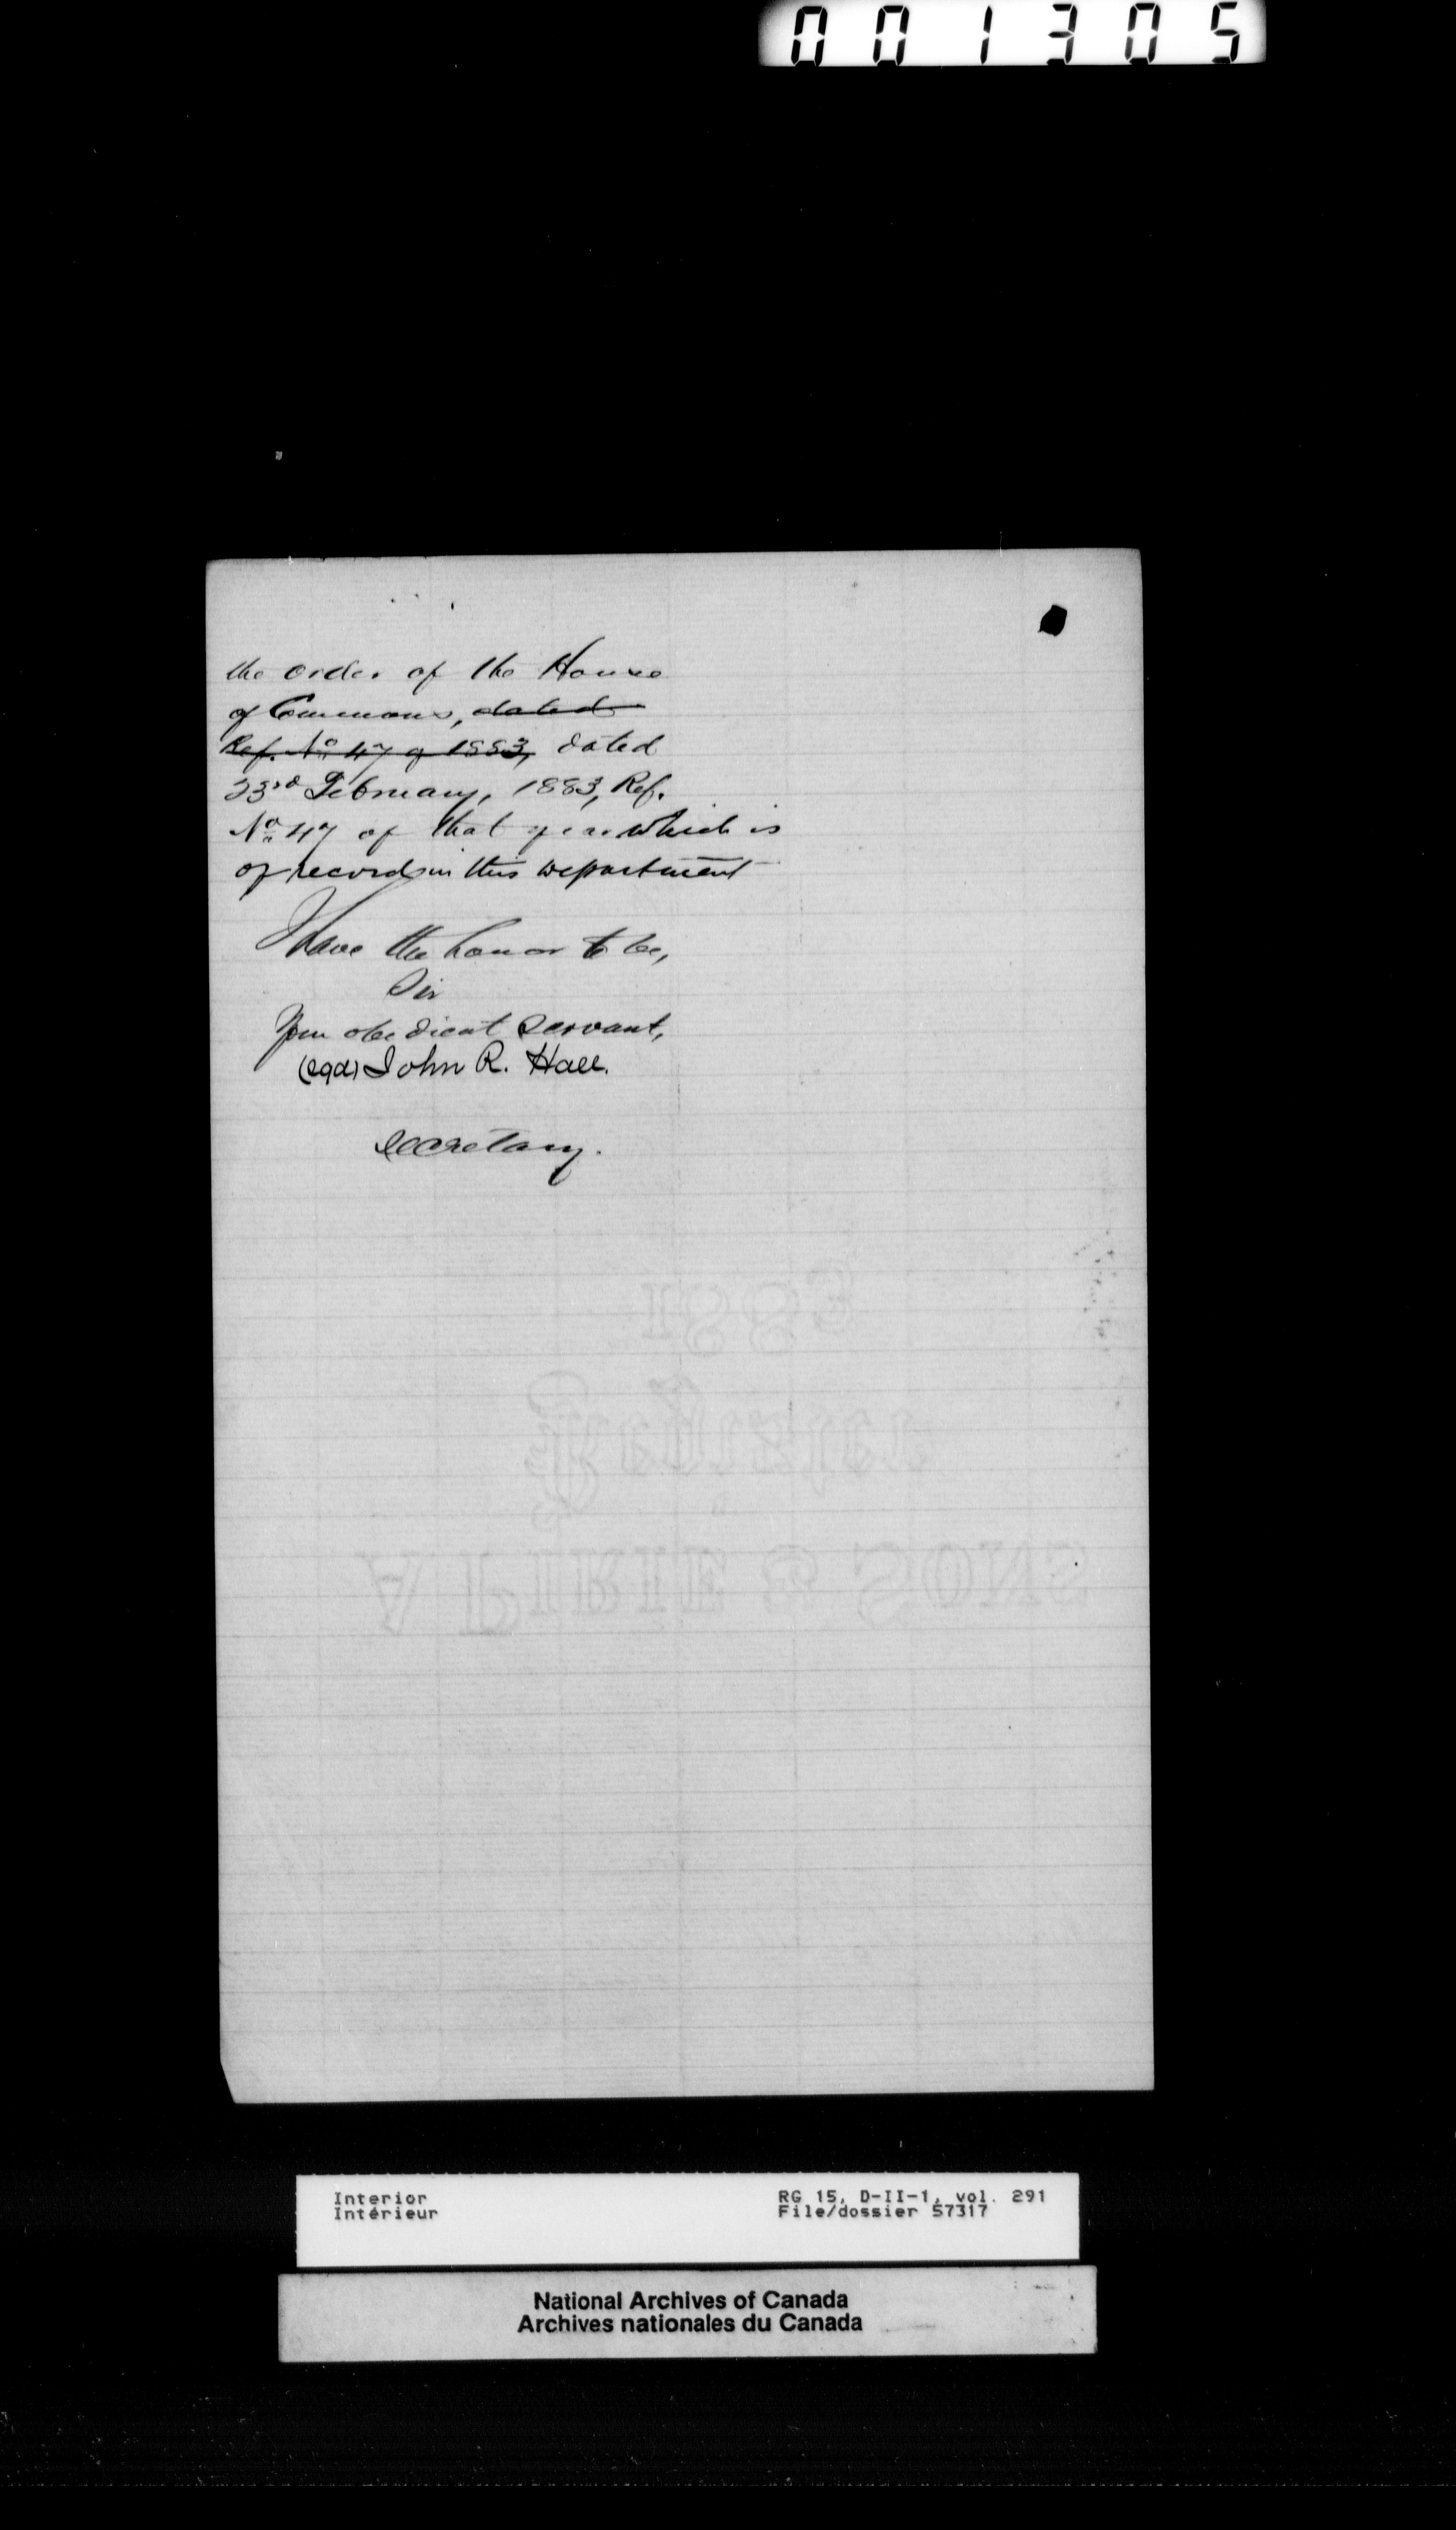 001305
the order of the House
of Commons, dated
Ref. No 47 of 1883, dated
23rd February, 1883, Ref.
No 47 of that year which is
of record in this Department
I have the honor to be,
Sir
Your obedient servant,
(sgd) John R. Hall.
Secretary.
1883
Register
A PIRIE & SONS
Interior
Intérieur
RG 15, D-II-1, vol. 291
File/dossier 57317
National Archives of Canada
Archives nationales du Canada